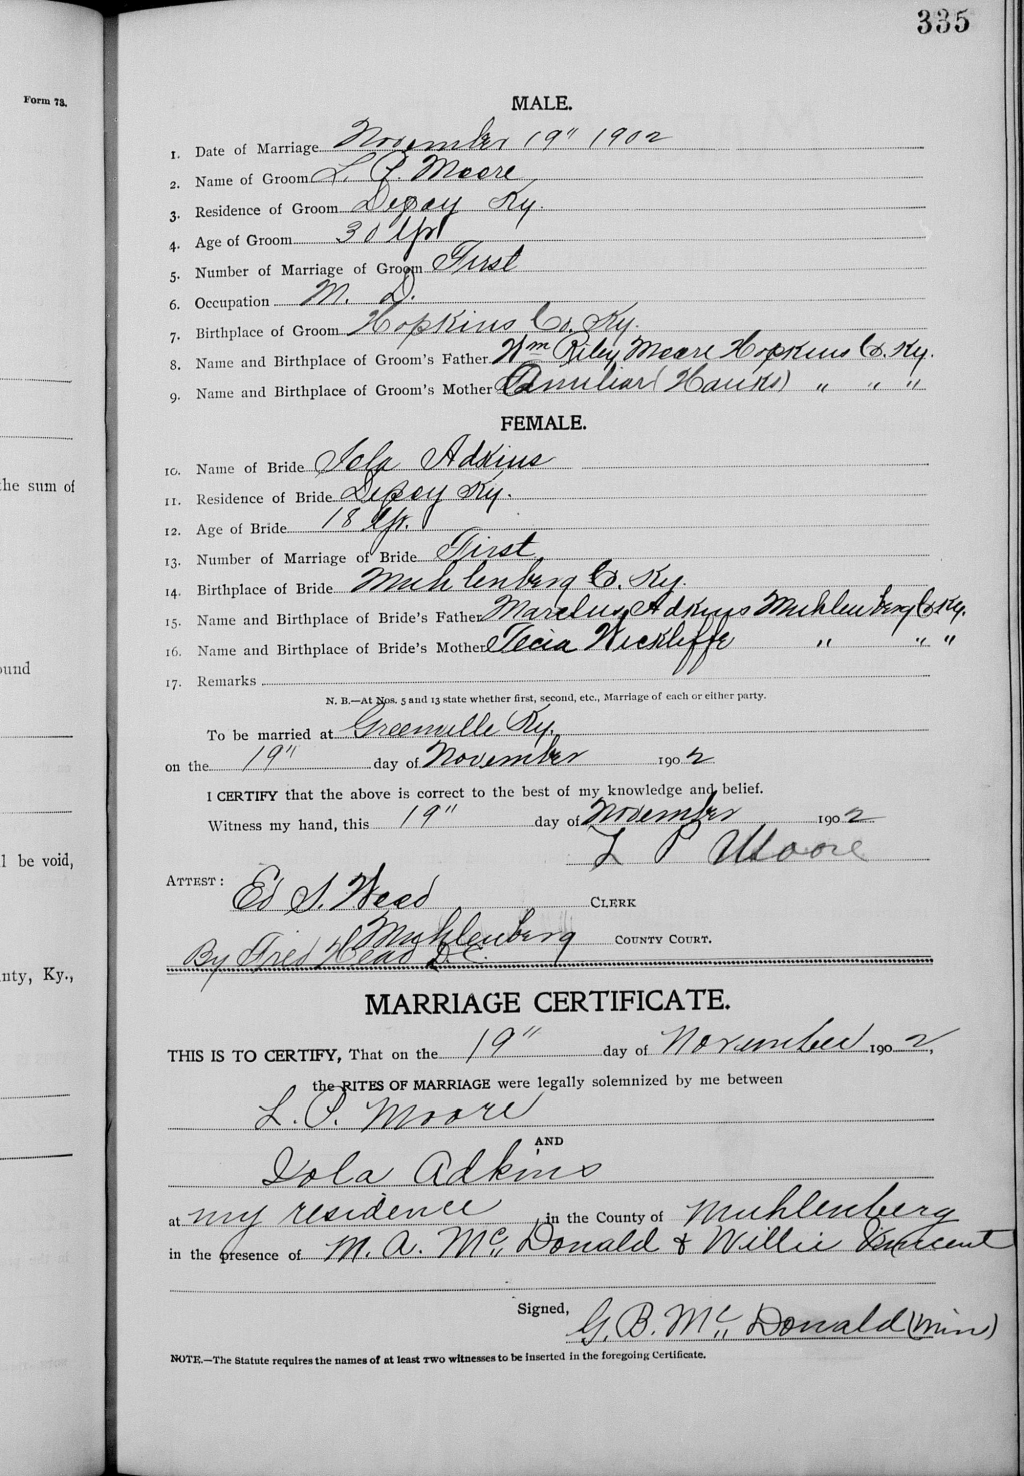 335
Form 73.
MALE.
1. Date of Marriage November 19" 1902
2. Name of Groom L. P. Moore
3. Residence of Groom Depoy Ky.
4. Age of Groom 30 Yr
5. Number of Marriage of Groom First
6. Occupation M. D.
7. Birthplace of Groom Hopkins Co. Ky.
8. Name and Birthplace of Groom's Father Wm Riley Moore Hopkins Co. Ky.
9. Name and Birthplace of Groom's Mother (Hanks) " " "
FEMALE.
10. Name of Bride Iola Adkins
11. Residence of Bride Depoy Ky.
12. Age of Bride 18 Yr.
13. Number of Marriage of Bride First
14. Birthplace of Bride Muhlenberg Co. Ky.
15. Name and Birthplace of Bride's Father Marcelus Adkins Muhlenberg Co Ky.
16. Name and Birthplace of Bride's Mother Wickliffe " " "
17. Remarks
N. B.—At Nos. 5 and 13 state whether first, second, etc., Marriage of each or either party.
To be married at Greenville Ky.
on the 19" day of November 1902
I CERTIFY that the above is correct to the best of my knowledge and belief.
Witness my hand, this 19" day of November 1902
L P Moore
ATTEST: Ed S. Wood CLERK
Muhlenberg COUNTY COURT.
By Fred Head D.C.
MARRIAGE CERTIFICATE.
THIS IS TO CERTIFY, That on the 19" day of November 1902,
the RITES OF MARRIAGE were legally solemnized by me between
L. P. Moore
AND
Iola Adkins
at my residence, in the County of Muhlenberg
in the presence of M. A. McDonald & Willie Vincent
Signed,
G. B. McDonald (min)
NOTE.—The Statute requires the names of at least TWO witnesses to be inserted in the foregoing Certificate.
the sum of
ound
l be void,
nty, Ky.,